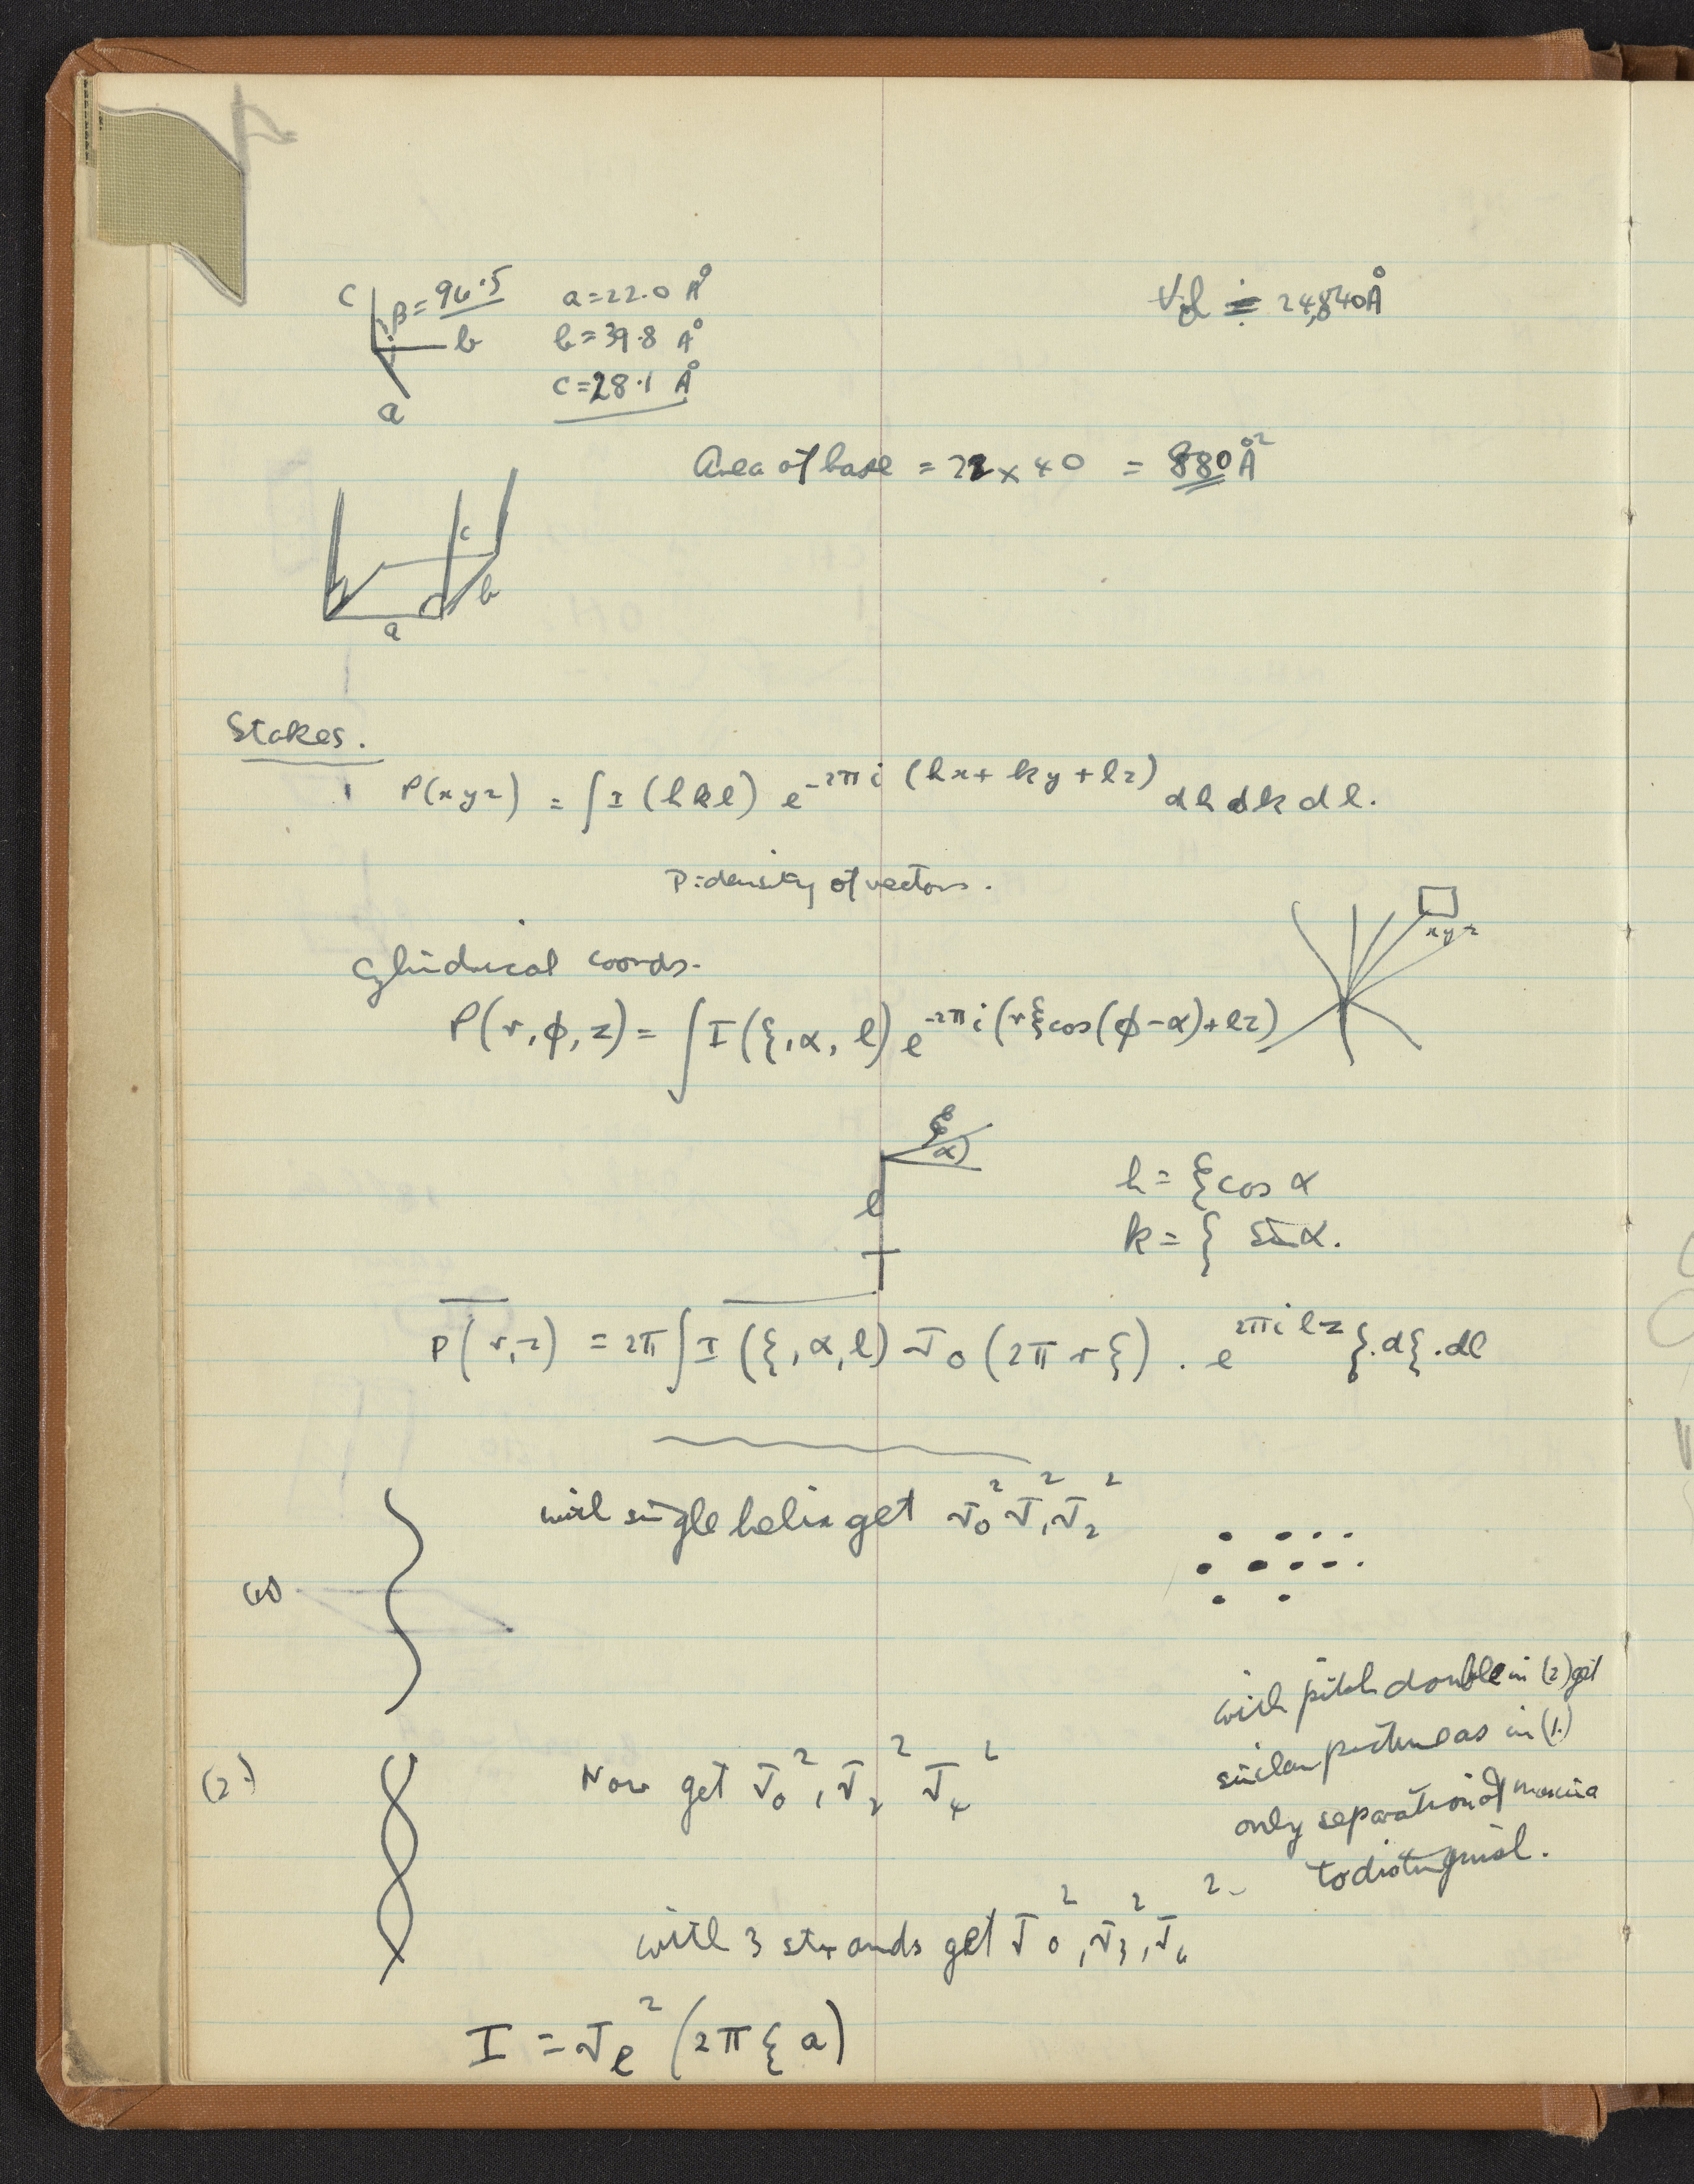 C
β = 96·5
b
a
a = 22·0 Å
b = 39·8 Å
c = 28·1 Å
Vol ≑ 24,840Å
Area of base = 22 x 40 = 880 Å²
c
b
a
Stokes.
P(xyz) = ∫ I (hkl) e^{-2πi (hx + ky + lz)} dh dk dl.
P = density of vectors.
xyz
Cylindrical coords.
P(r, φ, z) = ∫ I (ξ, α, l) e^{-2πi (rξ cos(φ-α) + lz)}
ξ
α
l
h = ξ cos α
k = ξ sin α.
P(r, z) = 2π ∫ I (ξ, α, l) J₀ (2π r ξ) . e^{2πi lz} ξ . dξ . dl
with single helix get J₀² J₁² J₂²
(1)
with pitch double in (2) get
similar picture as in (1.)
only separation of maxima
to distinguish.
(2.)
Now get J₀², J₂² J₄²
with 3 strands get J₀², J₃², J₆²
I = J_l² (2π ξ a)